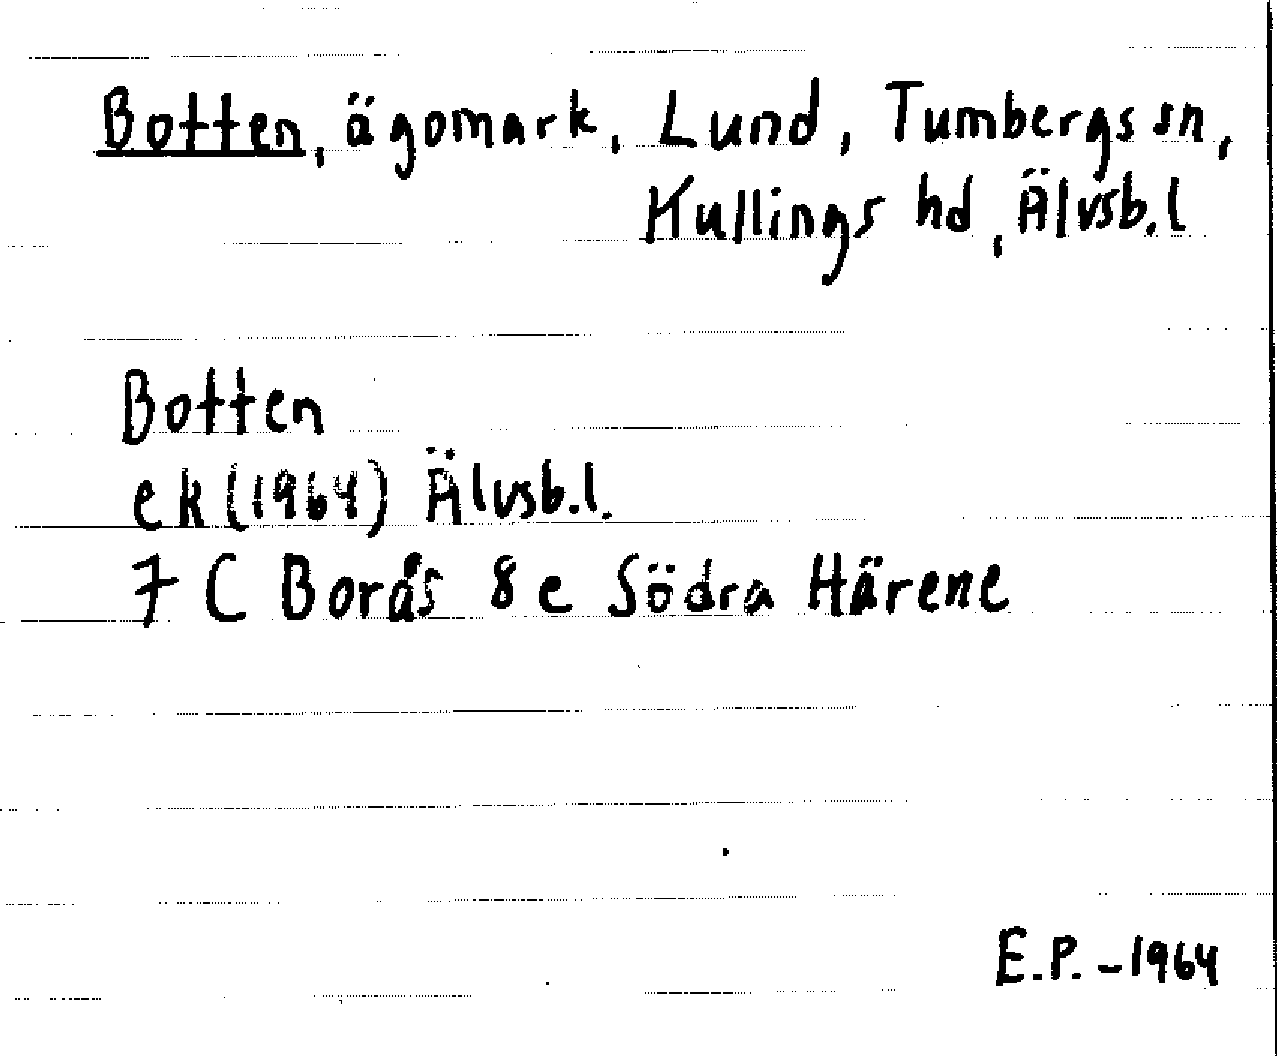 Botten, ägomark, Lund, Tumbergs sn,
Kullings hd, Älvsb.l
Botten
ek (1964) Älvsb.l.
7 C Borås 8e Södra Härene
E.P. - 1964